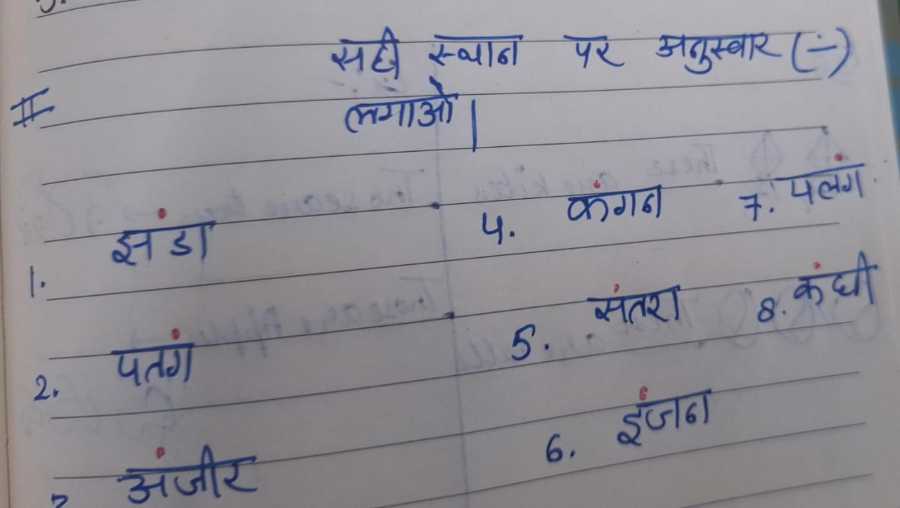 II सही स्थान पर अनुस्वार (ं)
लगाओ |
1. झंडा
2. पतंग
अंजीर
4. कंगन
5. संतरा
6. इंजन
7. पलंग
8. कंघी